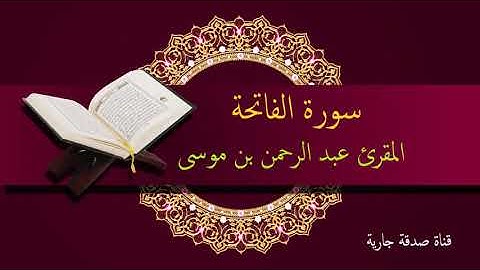 سورة الفاتحة
المقرئ عبد الرحمن بن موسى
قناة صدقة جارية